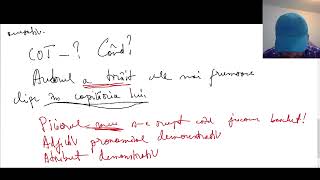 COT _? Când?
Autorul a trăit cele mai frumoase
clipe în copilăria lui.
Piciorul s-a rupt când jucam baschet!
Adjectiv pronominal demonstrativ
Atribut demonstrativ